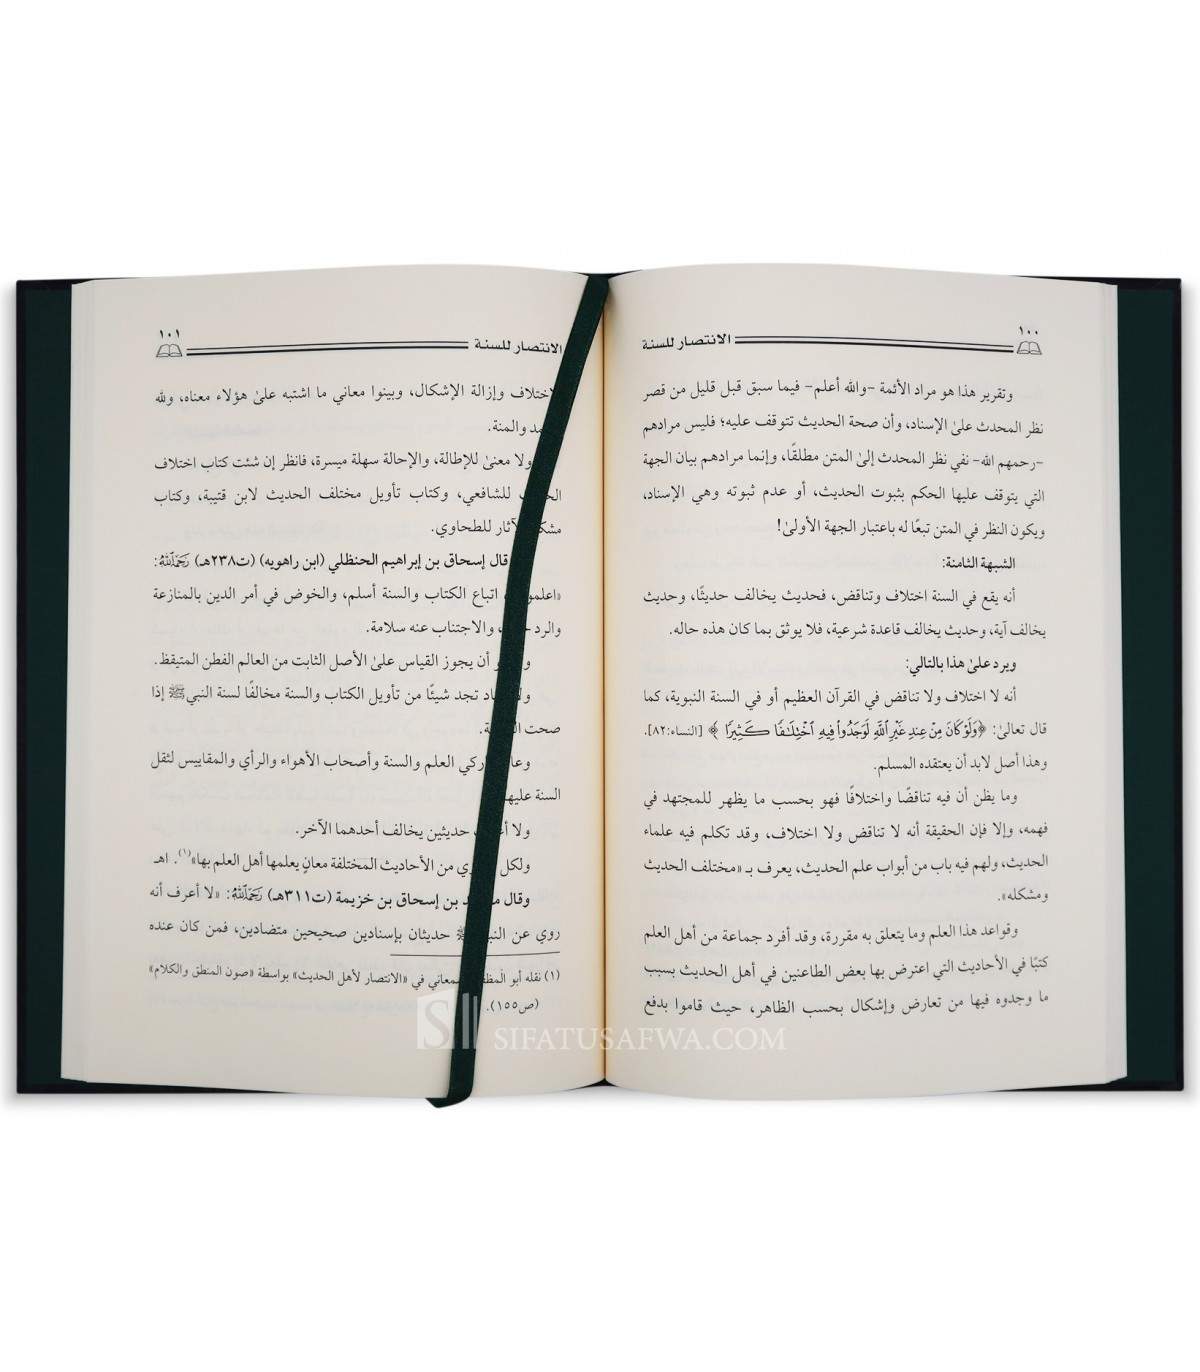 ١٠٠
الانتصار للسنة
وتقرير هذا هو مراد الأئمة -والله أعلم- فيما سبق قبل قليل من قصر
نظر المحدث علىٰ الإسناد، وأن صحة الحديث تتوقف عليه؛ فليس مرادهم
-رحمهم الله- نفي نظر المحدث إلىٰ المتن مطلقًا، وإنما مرادهم بيان الجهة
التي يتوقف عليها الحكم بثبوت الحديث، أو عدم ثبوته وهي الإسناد،
ويكون النظر في المتن تبعًا له باعتبار الجهة الأولىٰ!
الشبهة الثامنة:
أنه يقع في السنة اختلاف وتناقض، فحديث يخالف حديثًا، وحديث
يخالف آية، وحديث يخالف قاعدة شرعية، فلا يوثق بما كان هذه حاله.
ويرد علىٰ هذا بالتالي:
أنه لا اختلاف ولا تناقض في القرآن العظيم أو في السنة النبوية، كما
قال تعالىٰ: ﴿وَلَوْ كَانَ مِنْ عِندِ غَيْرِ ٱللَّهِ لَوَجَدُوا۟ فِيهِ ٱخْتِلَـٰفًا كَثِيرًا﴾ [النساء:٨٢].
وهذا أصل لابد أن يعتقده المسلم.
وما يظن أن فيه تناقضًا واختلافًا فهو بحسب ما يظهر للمجتهد في
فهمه، وإلا فإن الحقيقة أنه لا تناقض ولا اختلاف، وقد تكلم فيه علماء
الحديث، ولهم فيه باب من أبواب علم الحديث، يعرف بـ «مختلف الحديث
ومشكله».
وقواعد هذا العلم وما يتعلق به مقررة، وقد أفرد جماعة من أهل العلم
كتبًا في الأحاديث التي اعترض بها بعض الطاعنين في أهل الحديث بسبب
ما وجدوه فيها من تعارض وإشكال بحسب الظاهر، حيث قاموا بدفع
الانتصار للسنة
١٠١
وإزالة الإشكال، وبينوا معاني ما اشتبه علىٰ هؤلاء معناه، ولله
والمنة.
ولا معنىٰ للإطالة، والإحالة سهلة ميسرة، فانظر إن شئت كتاب اختلاف
للشافعي، وكتاب تأويل مختلف الحديث لابن قتيبة، وكتاب
للطحاوي.
قال إسحاق بن إبراهيم الحنظلي (ابن راهويه) (ت٢٣٨هـ) رَحِمَهُ ٱللَّهُ:
اتباع الكتاب والسنة أسلم، والخوض في أمر الدين بالمنازعة
والاجتناب عنه سلامة.
أن يجوز القياس علىٰ الأصل الثابت من العالم الفطن المتيقظ.
تجد شيئًا من تأويل الكتاب والسنة مخالفًا لسنة النبي ﷺ إذا
صحت
العلم والسنة وأصحاب الأهواء والرأي والمقاييس لثقل
السنة عليهم
ولا حديثين يخالف أحدهما الآخر.
ولكل من الأحاديث المختلفة معانٍ يعلمها أهل العلم بها»(١). اهـ
وقال بن إسحاق بن خزيمة (ت٣١١هـ) رَحِمَهُ ٱللَّهُ: «لا أعرف أنه
روي عن النبي ﷺ حديثان بإسنادين صحيحين متضادين، فمن كان عنده
(١) نقله أبو في «الانتصار لأهل الحديث» بواسطة «صون المنطق والكلام»
(ص١٥٥).
SIFATUSAFWA.COM